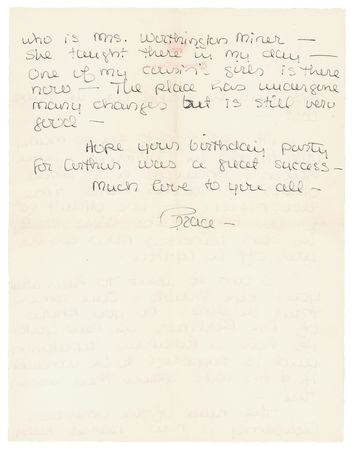 who is Mrs. Worthington Miner —
She taught there in my day —
One of my cousin's girls is there
now — The place has undergone
many changes but is still very
good —
Hope your birthday party
for Arthur was a great success —
Much love to you all —
Grace —